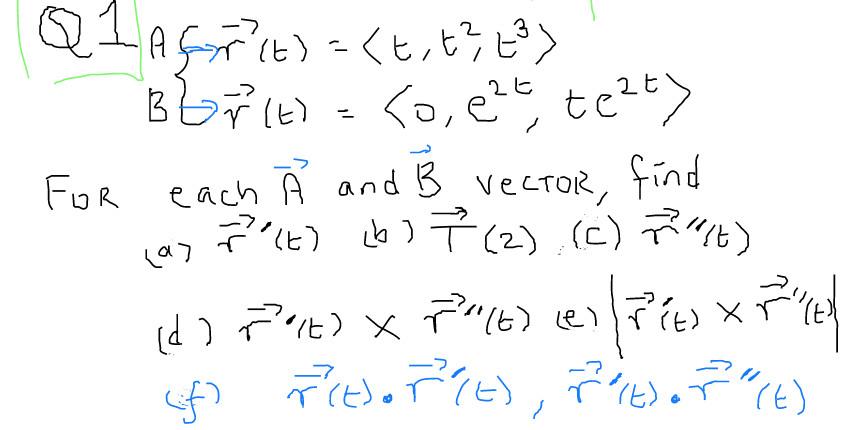 Q1 A { → r⃗(t) = <t, t², t³>
B { → r⃗(t) = <0, e²ᵗ, te²ᵗ>
FOR each A⃗ and B⃗ VECTOR, find
(a) r⃗'(t) (b) T⃗(2) (c) r⃗''(t)
(d) r⃗'(t) × r⃗''(t) (e) |r⃗'(t) × r⃗''(t)|
(f) r⃗(t) • r⃗'(t), r⃗'(t) • r⃗''(t)